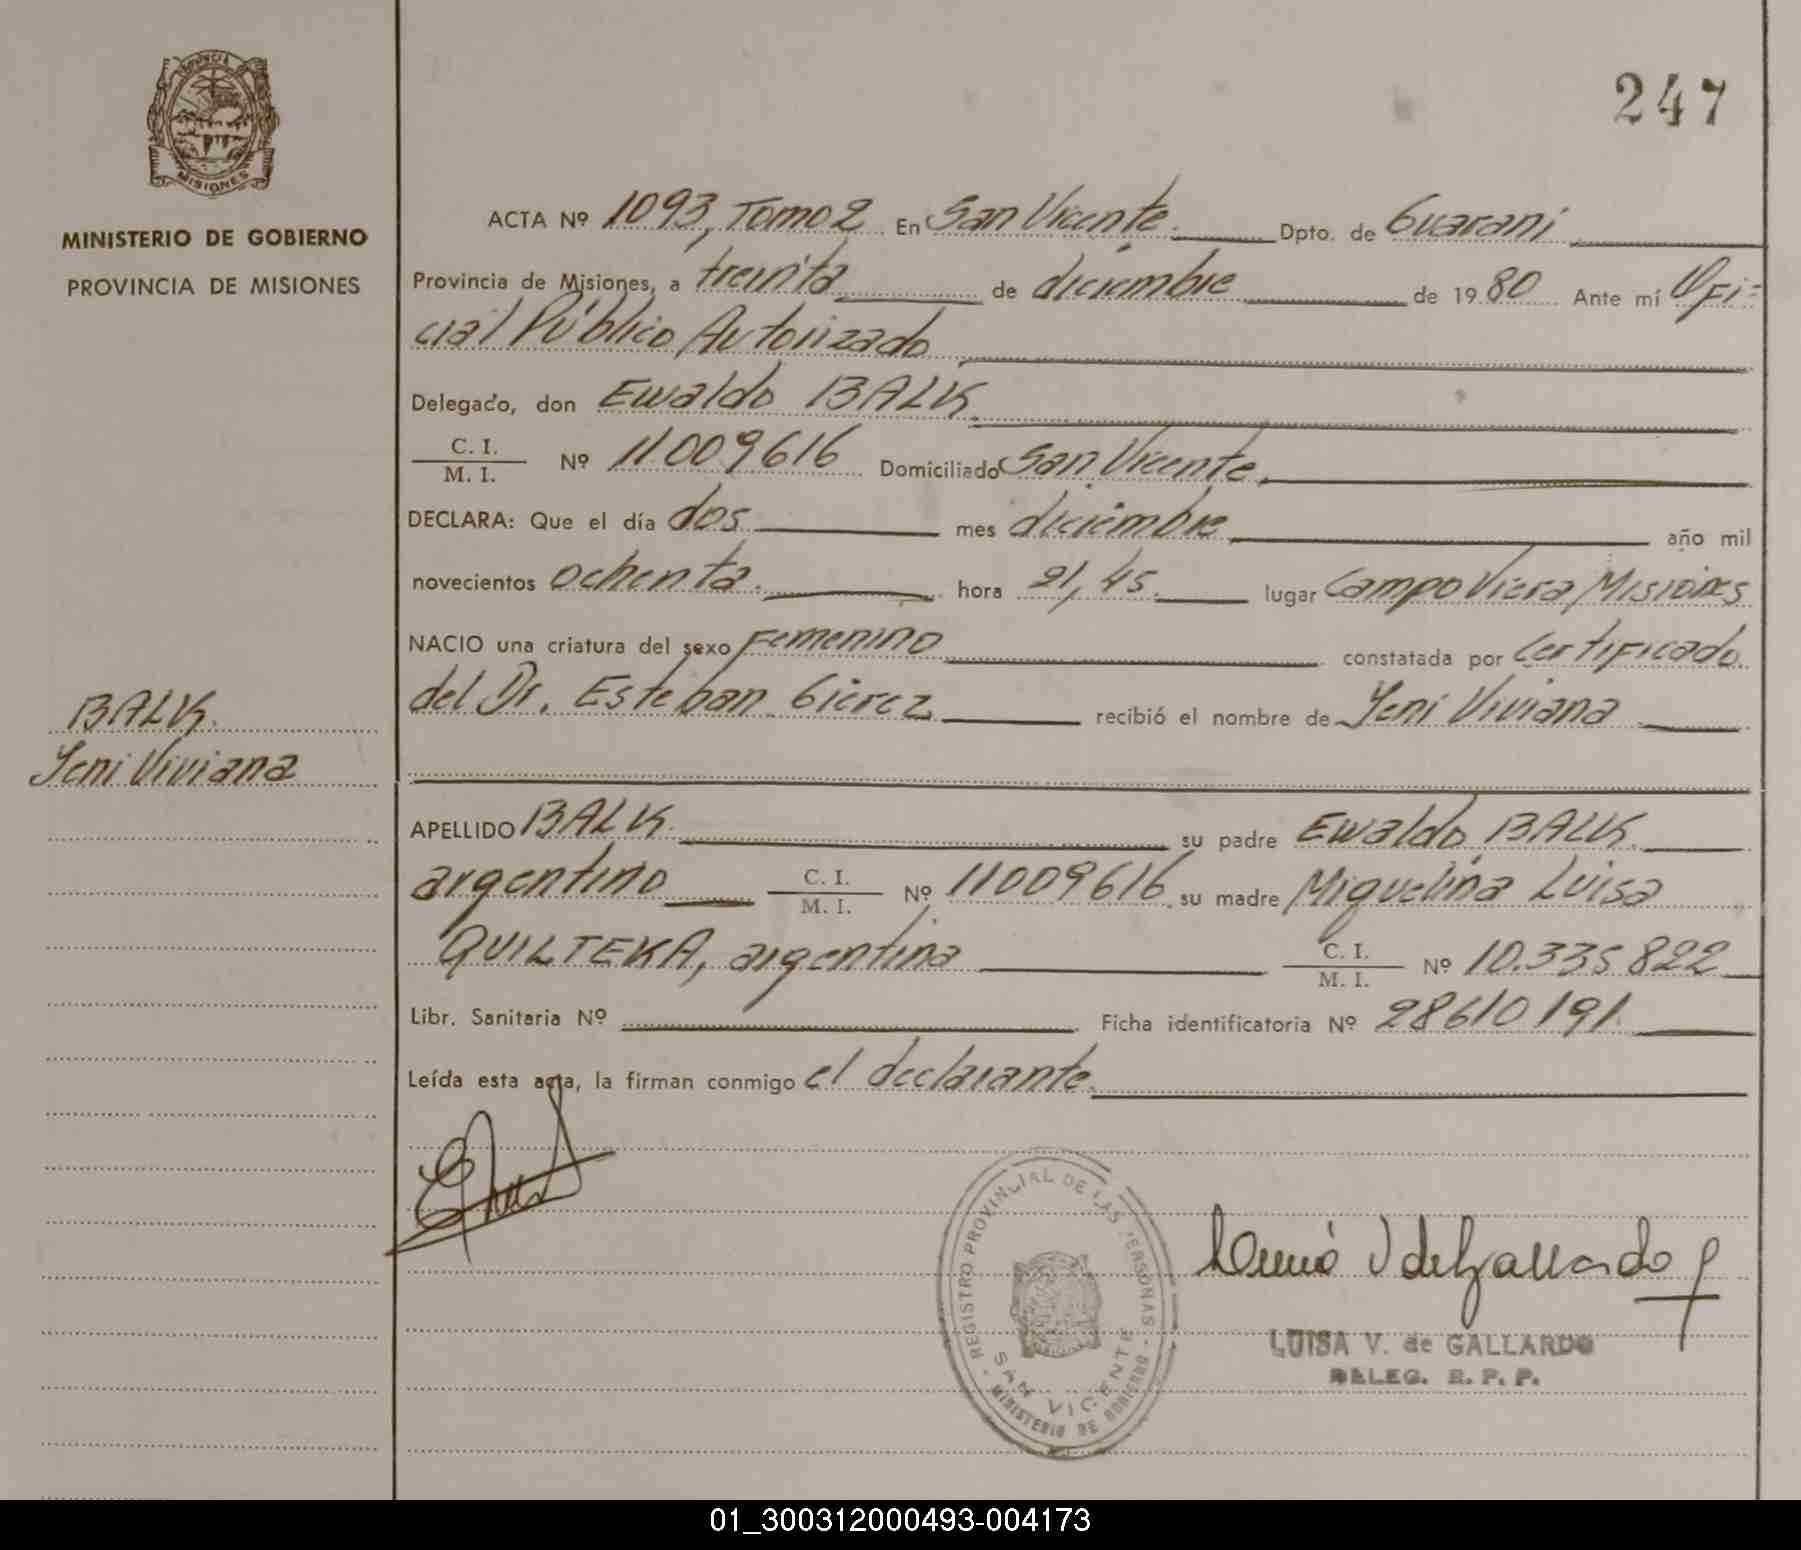 PROVINCIA
MISIONES
MINISTERIO DE GOBIERNO
PROVINCIA DE MISIONES
247
ACTA Nº 1093, Tomo 2 En San Vicente. Dpto. de Guaraní
Provincia de Misiones, a treinta de diciembre de 1980 Ante mí Ofi-
cial Público Autorizado
Delegado, don Ewaldo BALK.
C. I.
M. I. Nº 11009616 Domiciliado San Vicente.
DECLARA: Que el día dos mes diciembre año mil
novecientos ochenta. hora 21,45. lugar Campo Viera, Misiones
NACIO una criatura del sexo femenino constatada por Certificado
del Dr. Esteban Gierez recibió el nombre de Yeni Viviana
BALK.
Yeni Viviana
APELLIDO BALK. su padre Ewaldo BALK.
argentino C. I.
M. I. Nº 11009616. su madre Miguelina Luisa
QUILTEKA, argentina C. I.
M. I. Nº 10.335822
Libr. Sanitaria Nº Ficha identificatoria Nº 28610191.
Leída esta acta, la firman conmigo el declarante.
REGISTRO PROVINCIAL DE LAS PERSONAS
SAN VICENTE
MINISTERIO DE GOBIERNO
LUISA V. de GALLARDO
DELEG. R. P. P.
01_300312000493-004173